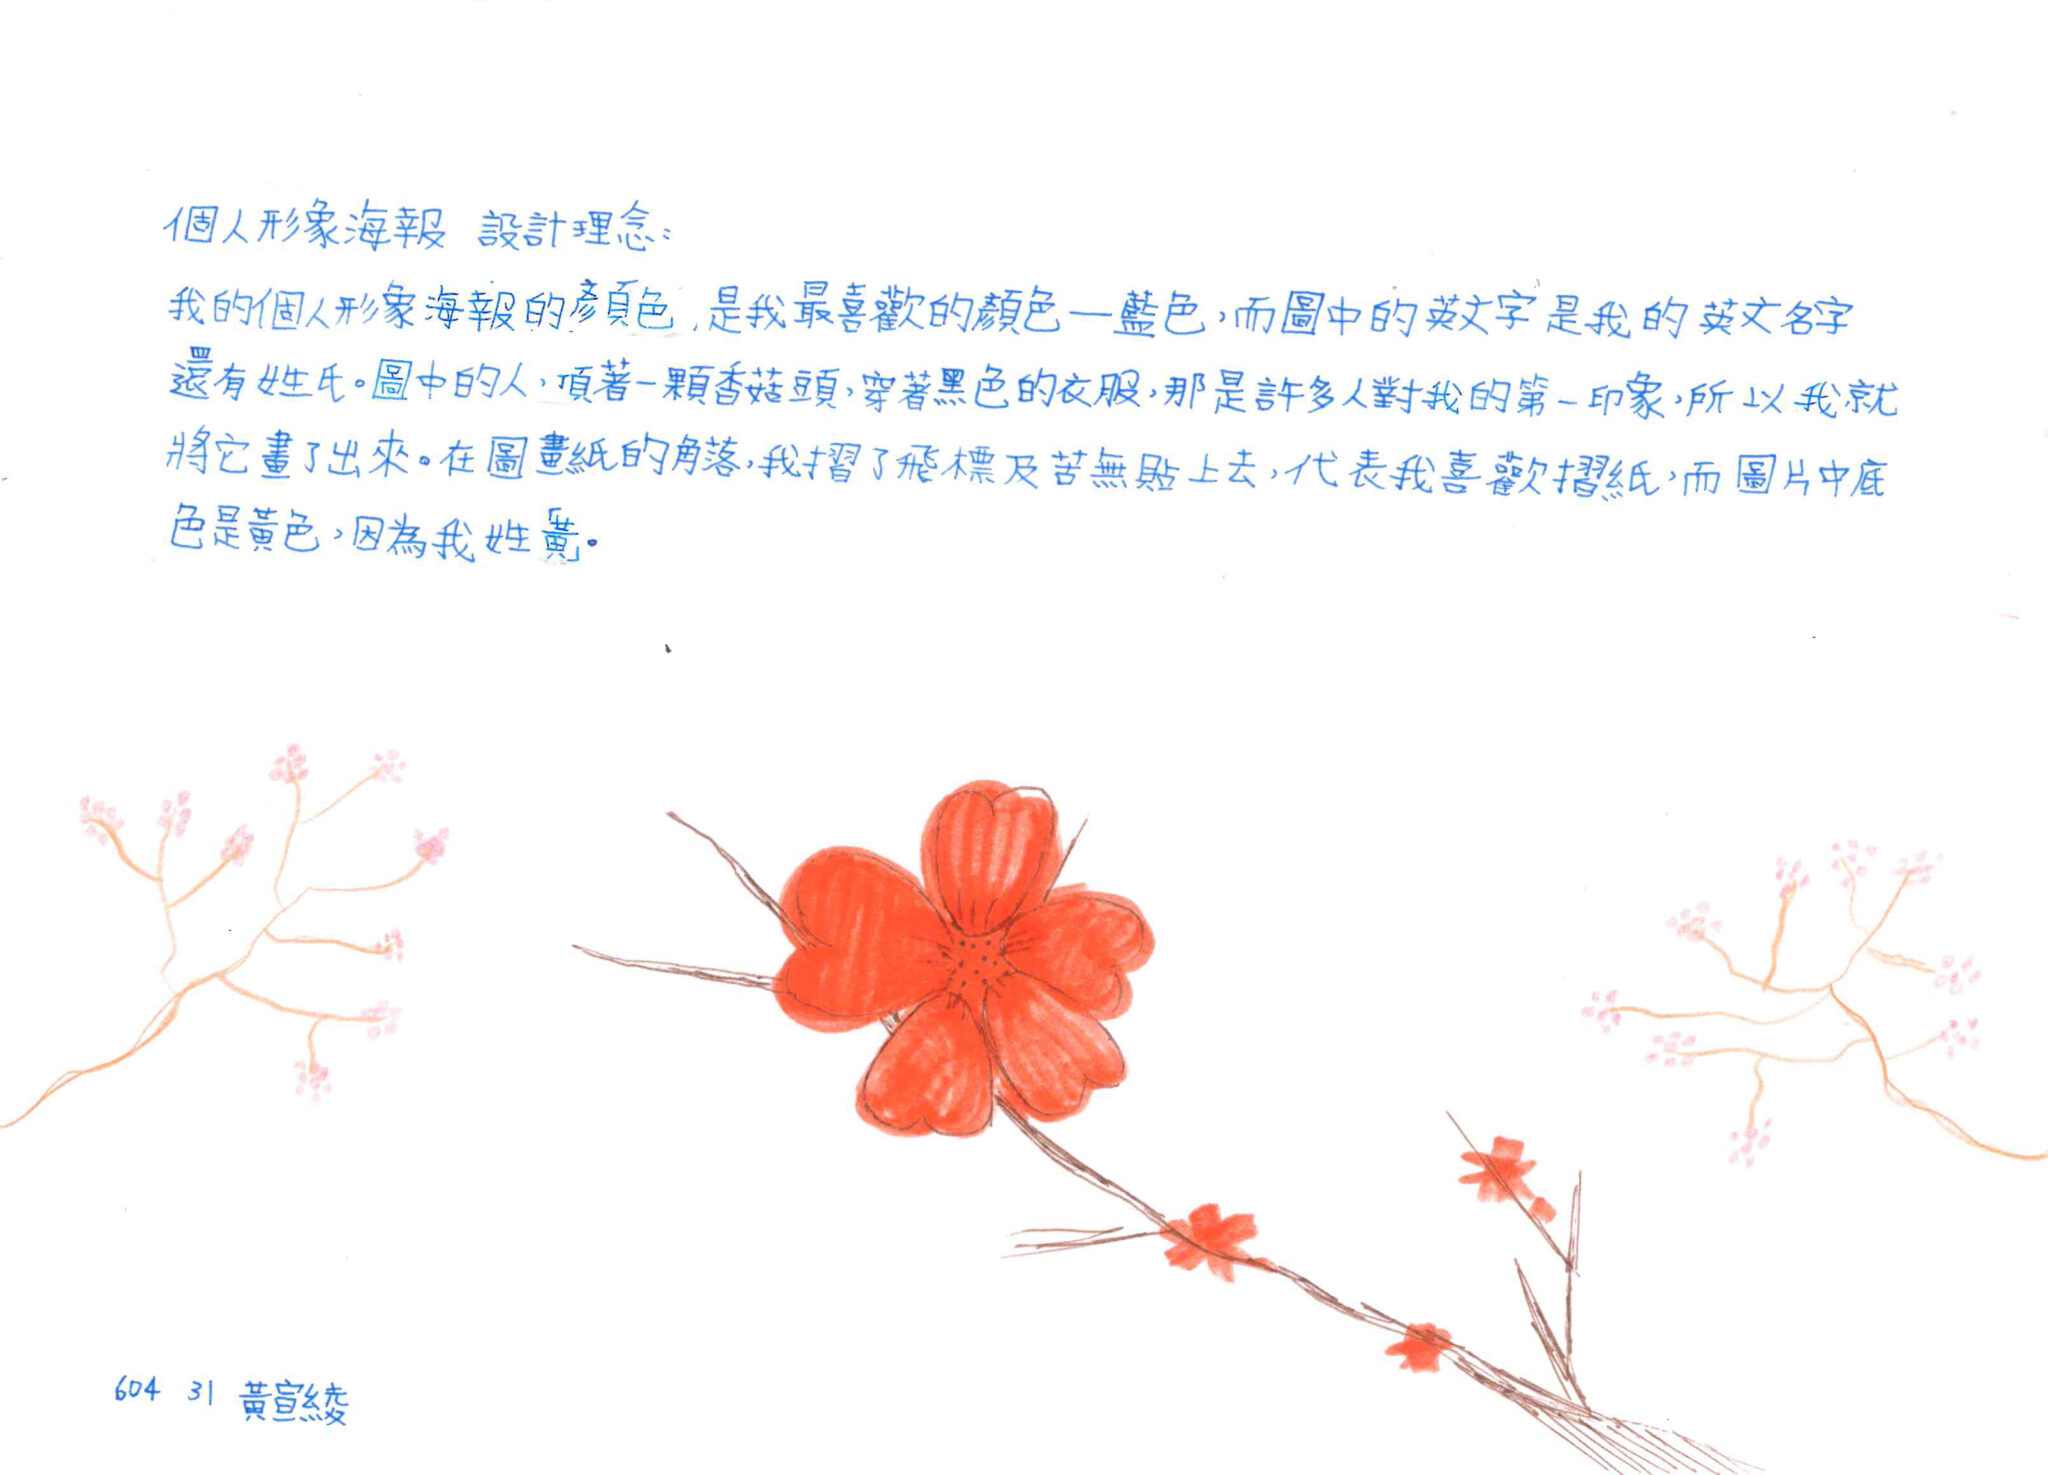 個人形象海報 設計理念:
我的個人形象海報的顏色,是我最喜歡的顏色一藍色,而圖中的英文字是我的英文名字
還有姓氏。圖中的人,頂著一顆香菇頭,穿著黑色的衣服,那是許多人對我的第一印象,所以我就
將它畫了出來。在圖畫紙的角落,我摺了飛標及苦無貼上去,代表我喜歡摺紙,而圖片中底
色是黃色,因為我姓「黃」。
604 31 黃宣綾